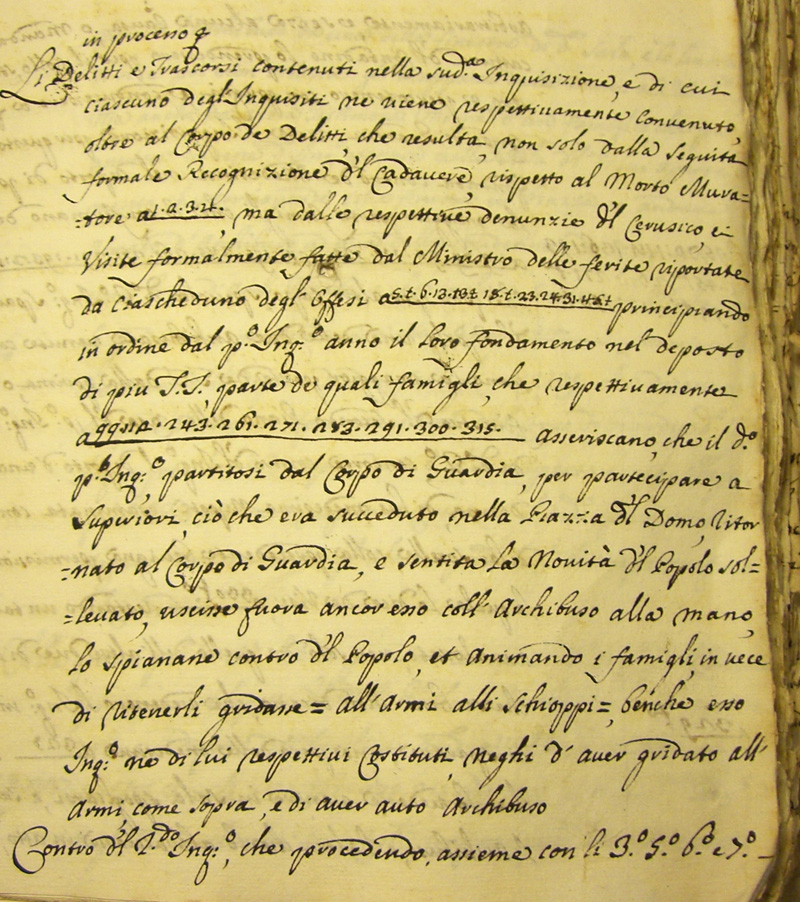 in processo
Li Delitti e Trascorsi contenuti nella sud.a Inquisizione, e di cui
ciascuno degl'Inquisiti ne viene respettivamente convenuto,
oltre al Corpo de Delitti, che resulta, non solo dalla seguita
formale Recognizione d'l Cadavere, rispetto al Morto Mura=
=tore a 1. 2. 3. 4. , ma dalle respettive denunzie d'l Cerusico, e
Visite formalmente fatte dal Ministro delle ferite riportate
da ciascheduno degl'Offesi a principiando
in ordine dal p.o Inq.o anno il Loro fondamento nel deposto
di piu T.T., parte de quali famigli, che respettivamente
a 243. 261. 271. 283. 291. 300. 315. asseriscano, che il d.o
p.o Inq.o partitosi dal Corpo di Guardia, per partecipare a
Superiori, ciò che era succeduto nella Piazza d'l Domo, ritor
=nato al Corpo di Guardia, e sentita La Novità d'l Popolo sol=
=levato, uscisse fuora ancor esso coll'Archibuso alla mano,
lo spianasse contro d'l Popolo, et animando i famigli, in vece
di ritenerli gridasse= all'Armi alli Schioppi=, benche esso
Inq.o ne di lui respettivi Costituti, neghi d'aver gridato all'
Armi, come sopra, e di aver auto Archibuso
Contro d'l 2.do Inq.o, che procedendo, assieme con li 3.o 5.o 6.o e 7.o